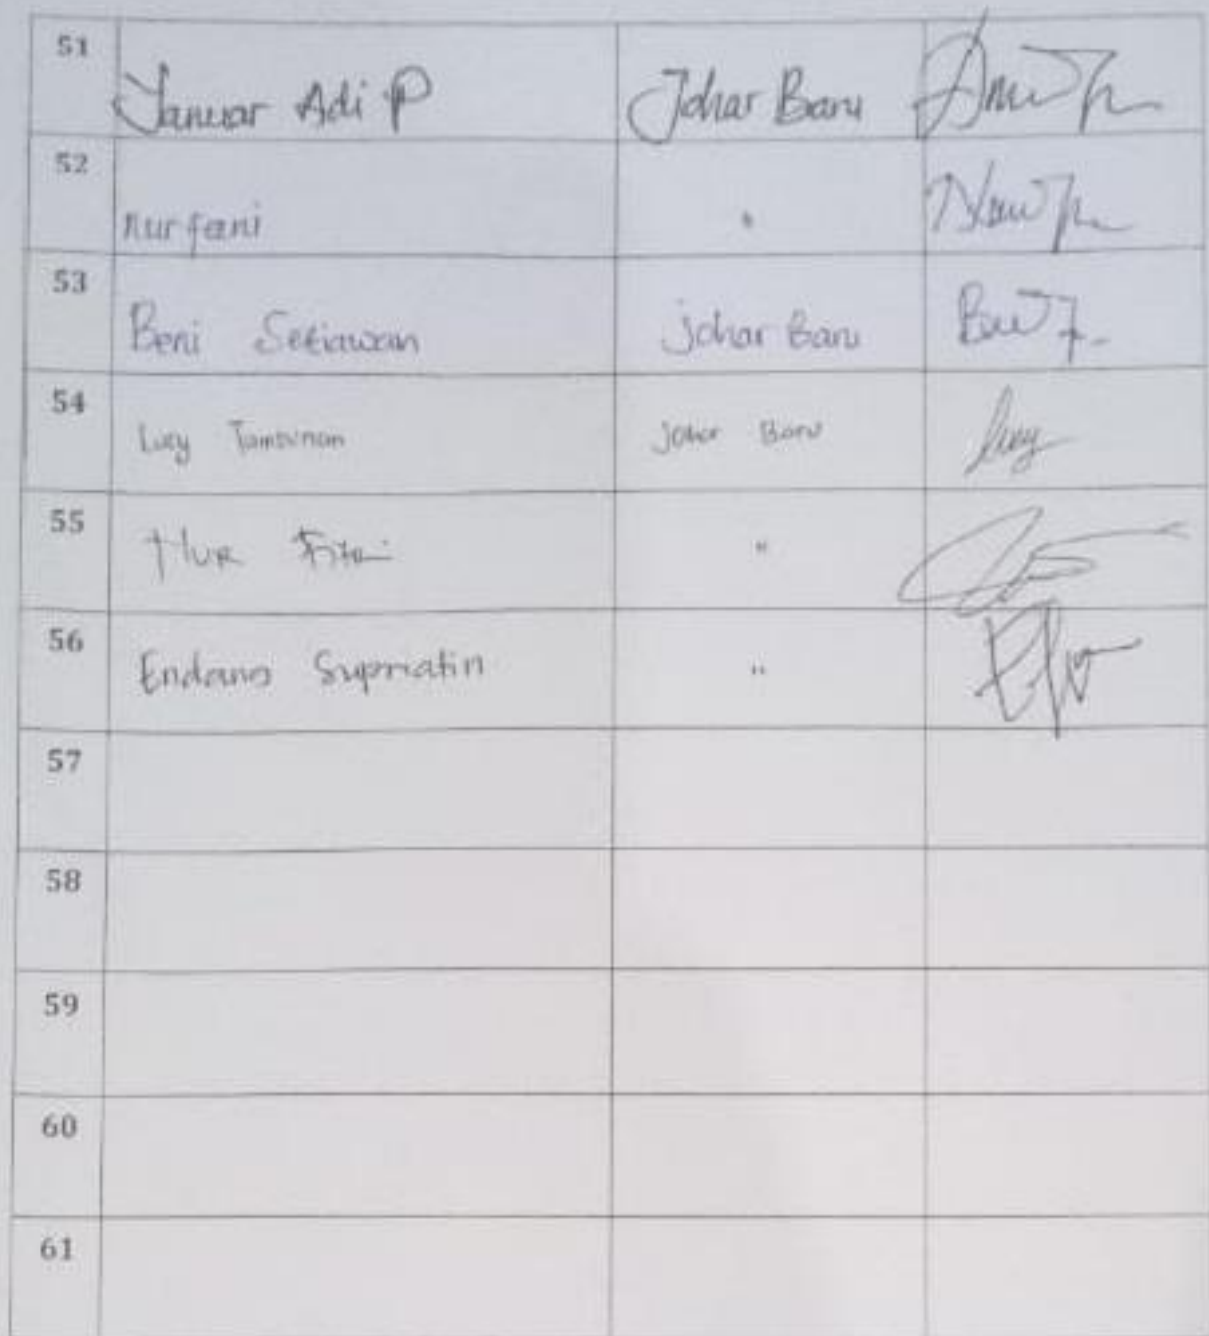 51 Januar Adi P Johar Baru
52 nurfani "
53 Beni Setiawan johar Baru
54 Lucy Tambunan Johar Baru lucy
55 Nur Fitri "
56 Endang Supriatin "
57
58
59
60
61